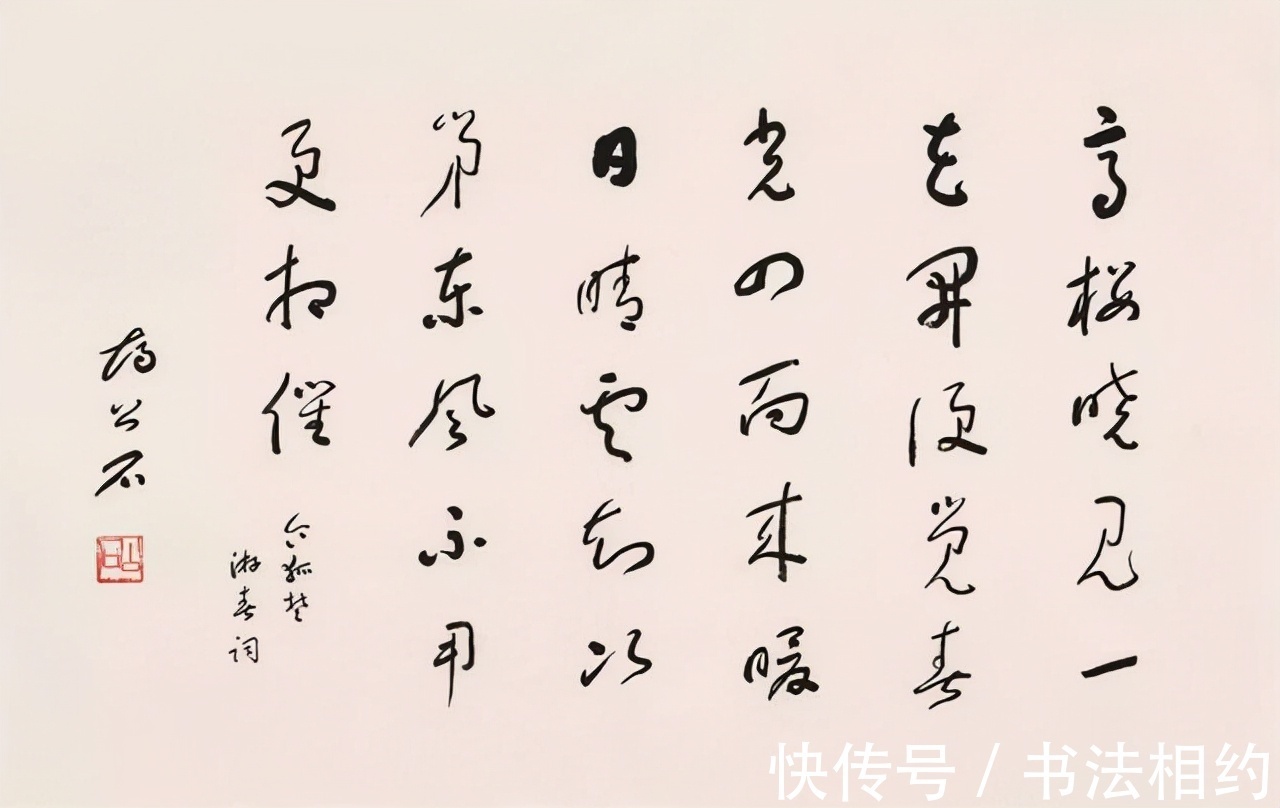 高楼晓见一
花开便觉春
光四面来暖
日晴云知次
第东风不用
更相催
令狐楚
游春词
公石
快传号 / 书法相约